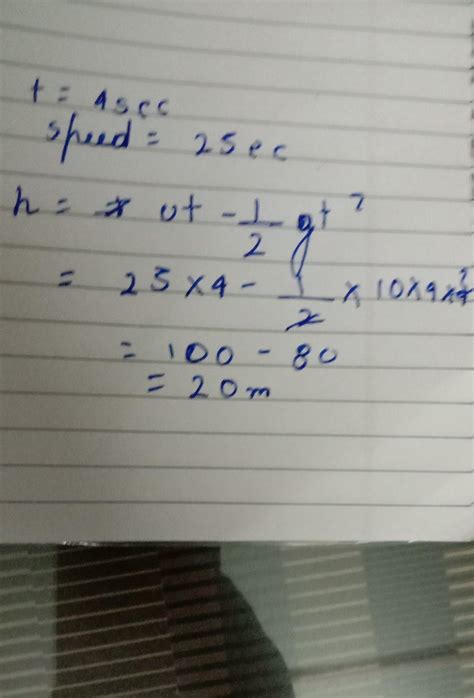 t = 4sec
speed = 25ec
h = ut - 1/2 gt²
= 25 x 4 - 1/2 x 10 x 4 x 4
= 100 - 80
= 20m